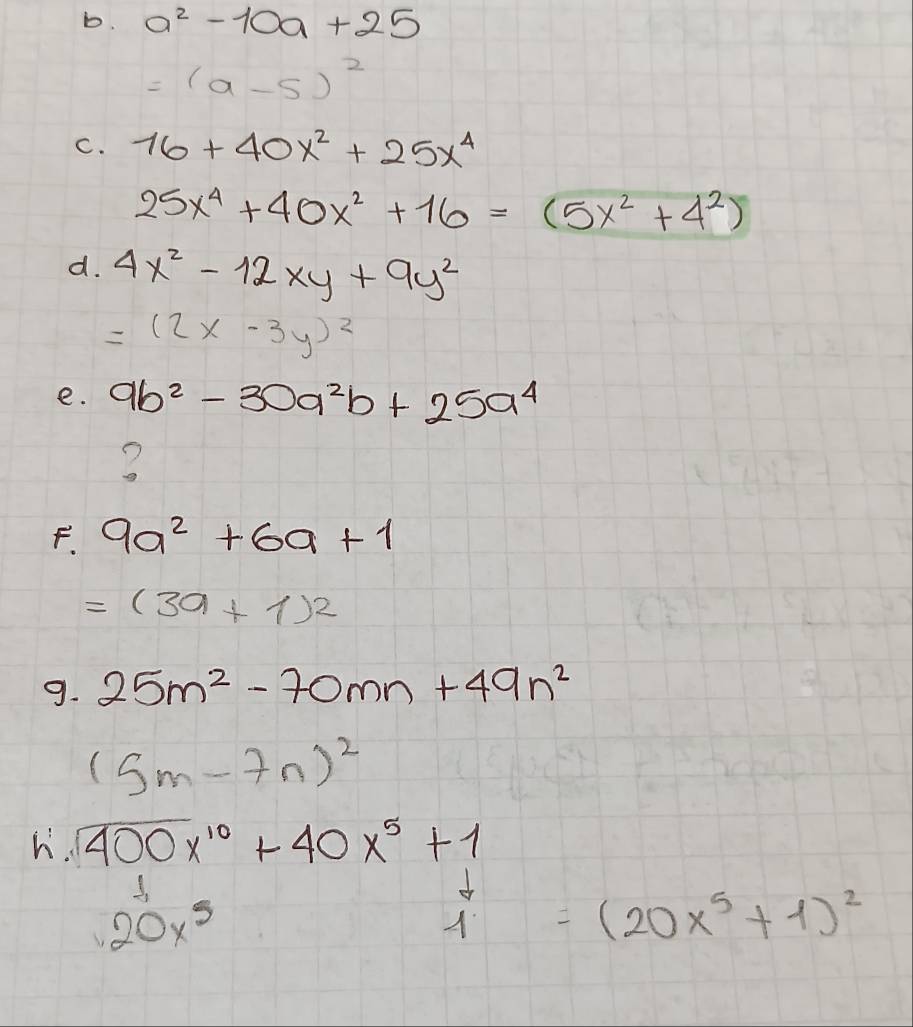 b. a² - 10a + 25
= (a - 5)²
c. 16 + 40x² + 25x⁴
25x⁴ + 40x² + 16 = (5x² + 4²)
d. 4x² - 12xy + 9y²
= (2x - 3y)²
e. 9b² - 30a²b + 25a⁴
?
F. 9a² + 6a + 1
= (3a + 1)2
g. 25m² - 70mn + 49n²
(5m - 7n)²
h. √400x¹⁰ + 40x⁵ + 1
↓ ↓
20x⁵ 1 = (20x⁵ + 1)²